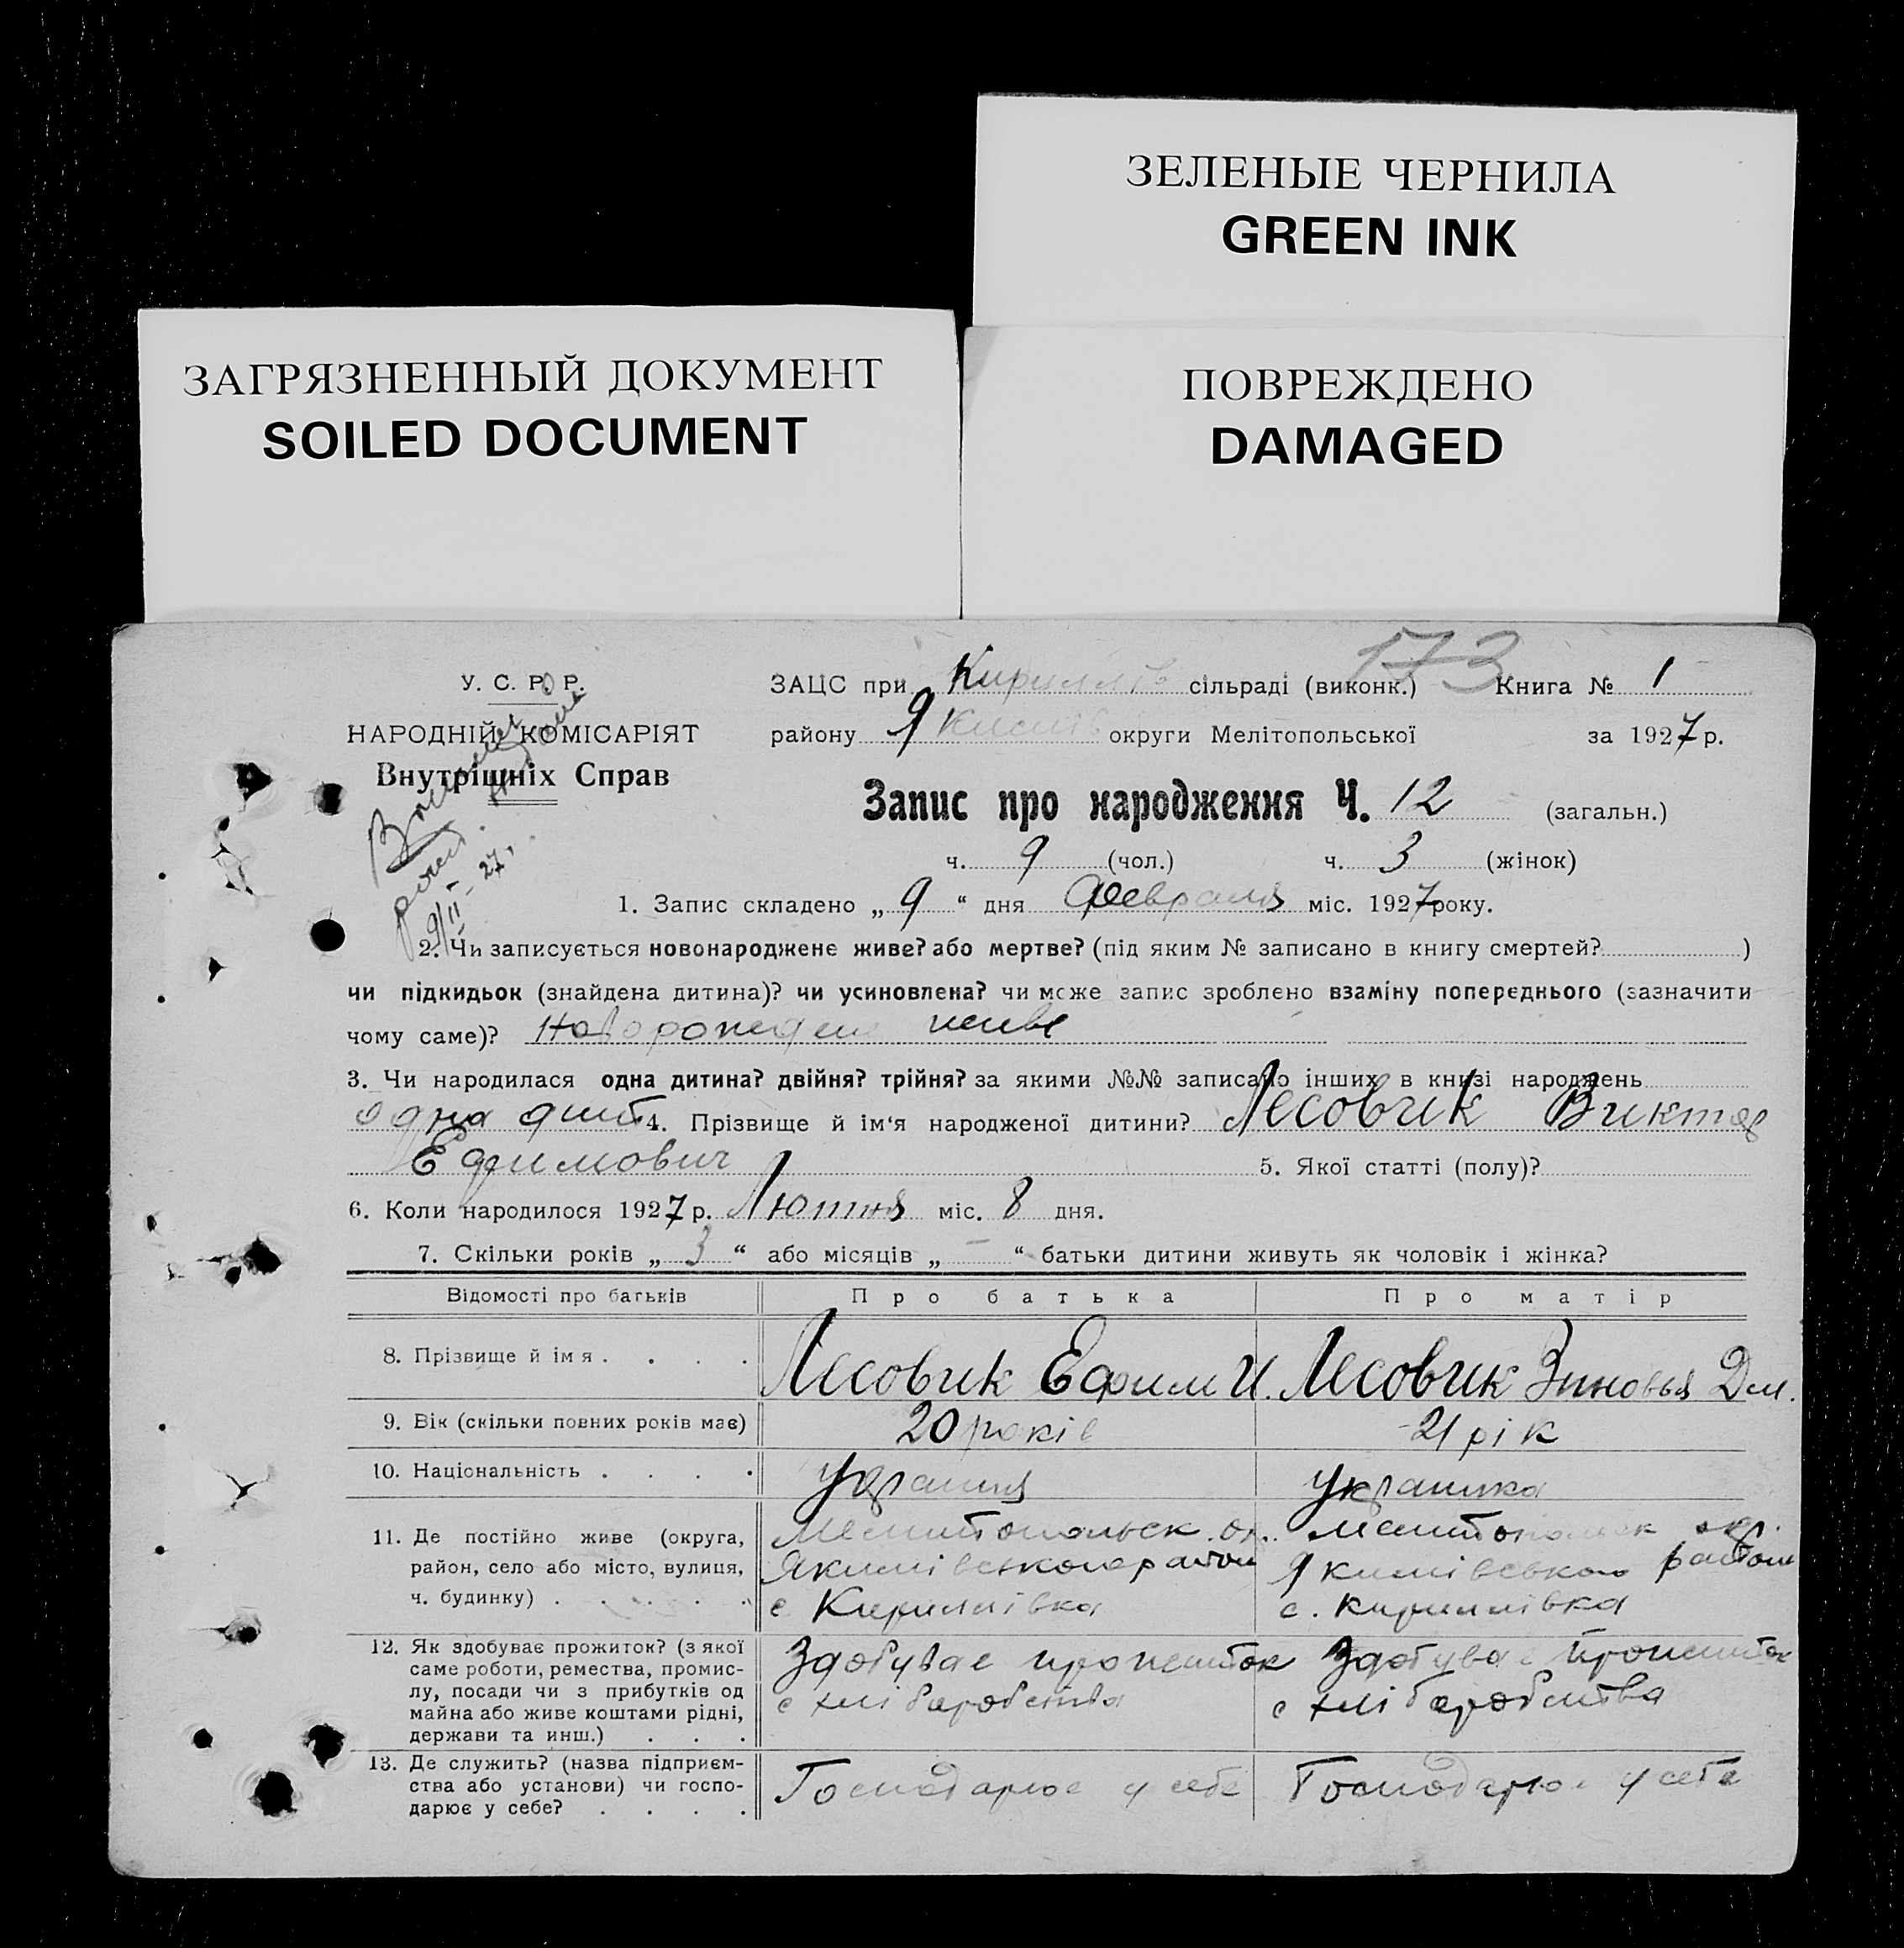 ЗЕЛЕНЫЕ ЧЕРНИЛА
GREEN INK
ЗАГРЯЗНЕННЫЙ ДОКУМЕНТ
SOILED DOCUMENT
ПОВРЕЖДЕНО
DAMAGED
173
У. С. Р. Р.
НАРОДНІЙ КОМІСАРІЯТ
Внутрішніх Справ
9/II - 27.
ЗАЦС при Кириллів сільраді (виконк.) Книга № 1
району Якимів округи Мелітопольської за 1927 р.
Запис про народження Ч. 12 (загальн.)
ч. 9 (чол.) ч. 3 (жінок)
1. Запис складено „ 9 “ дня февраля міс. 1927 року.
2. Чи записується новонароджене живе? або мертве? (під яким № записано в книгу смертей? )
чи підкидьок (знайдена дитина)? чи усиновлена? чи може запис зроблено взаміну попереднього (зазначити
чому саме)? живе
3. Чи народилася одна дитина? двійня? трійня? за якими №№ записано інших в книзі народжень
одна дит 4. Прізвище й ім‘я народженої дитини? Лесовик Виктор
Ефимович 5. Якої статті (полу)?
6. Коли народилося 1927 р. Лютня міс. 8 дня.
7. Скільки років „ 3 “ або місяців „ – “ батьки дитини живуть як чоловік і жінка?
Відомості про батьків Про батька Про матір
8. Прізвище й імя . . . . Лесовик Ефим И. Лесовик Зиновья Дм.
9. Вік (скільки повних років має) 20 років 21 рік
10. Національність . . . . Українка
11. Де постійно живе (округа, Мелитопольск. ок. Мелитопольск окр.
район, село або місто, вулиця, Якимівського район Якимівського район
ч. будинку) . . . . . с Кириллівка с. Кириллівка
12. Як здобуває прожиток? (з якої Здобуває прожиток Здобуває прожиток
саме роботи, ремества, промис-
лу, посади чи з прибутків од с хліборобства с хліборобства
майна або живе коштами рідні,
держави та инш.) . . .
13. Де служить? (назва підприєм-
ства або установи) чи госпо- Господарює у себе Господарює у себе
дарює у себе? . . . .